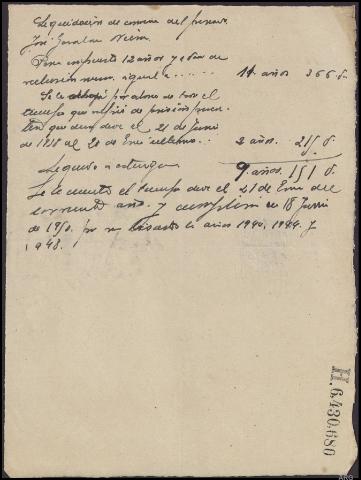 Liquidación de condena del penado
José
Pena impuesta 12 años y 1 día de
reclusión menor, igual a ...... 11 años 366 d.
Se le abona por abono de todo el
tiempo que sufrió de prisión preven
tiva que desde el 21 de Junio
de 1938 al 20 de Enº último .. 2 años. 215 d.
Líquido a extinguir 9 años. 151 d.
Se le cuenta el tiempo desde el 21 de Enero del
corriente año. y cumplirá en 18 Junio
de 1950. por ser bisiestos los años 1940, 1944 y
1948.
H.6.430.680